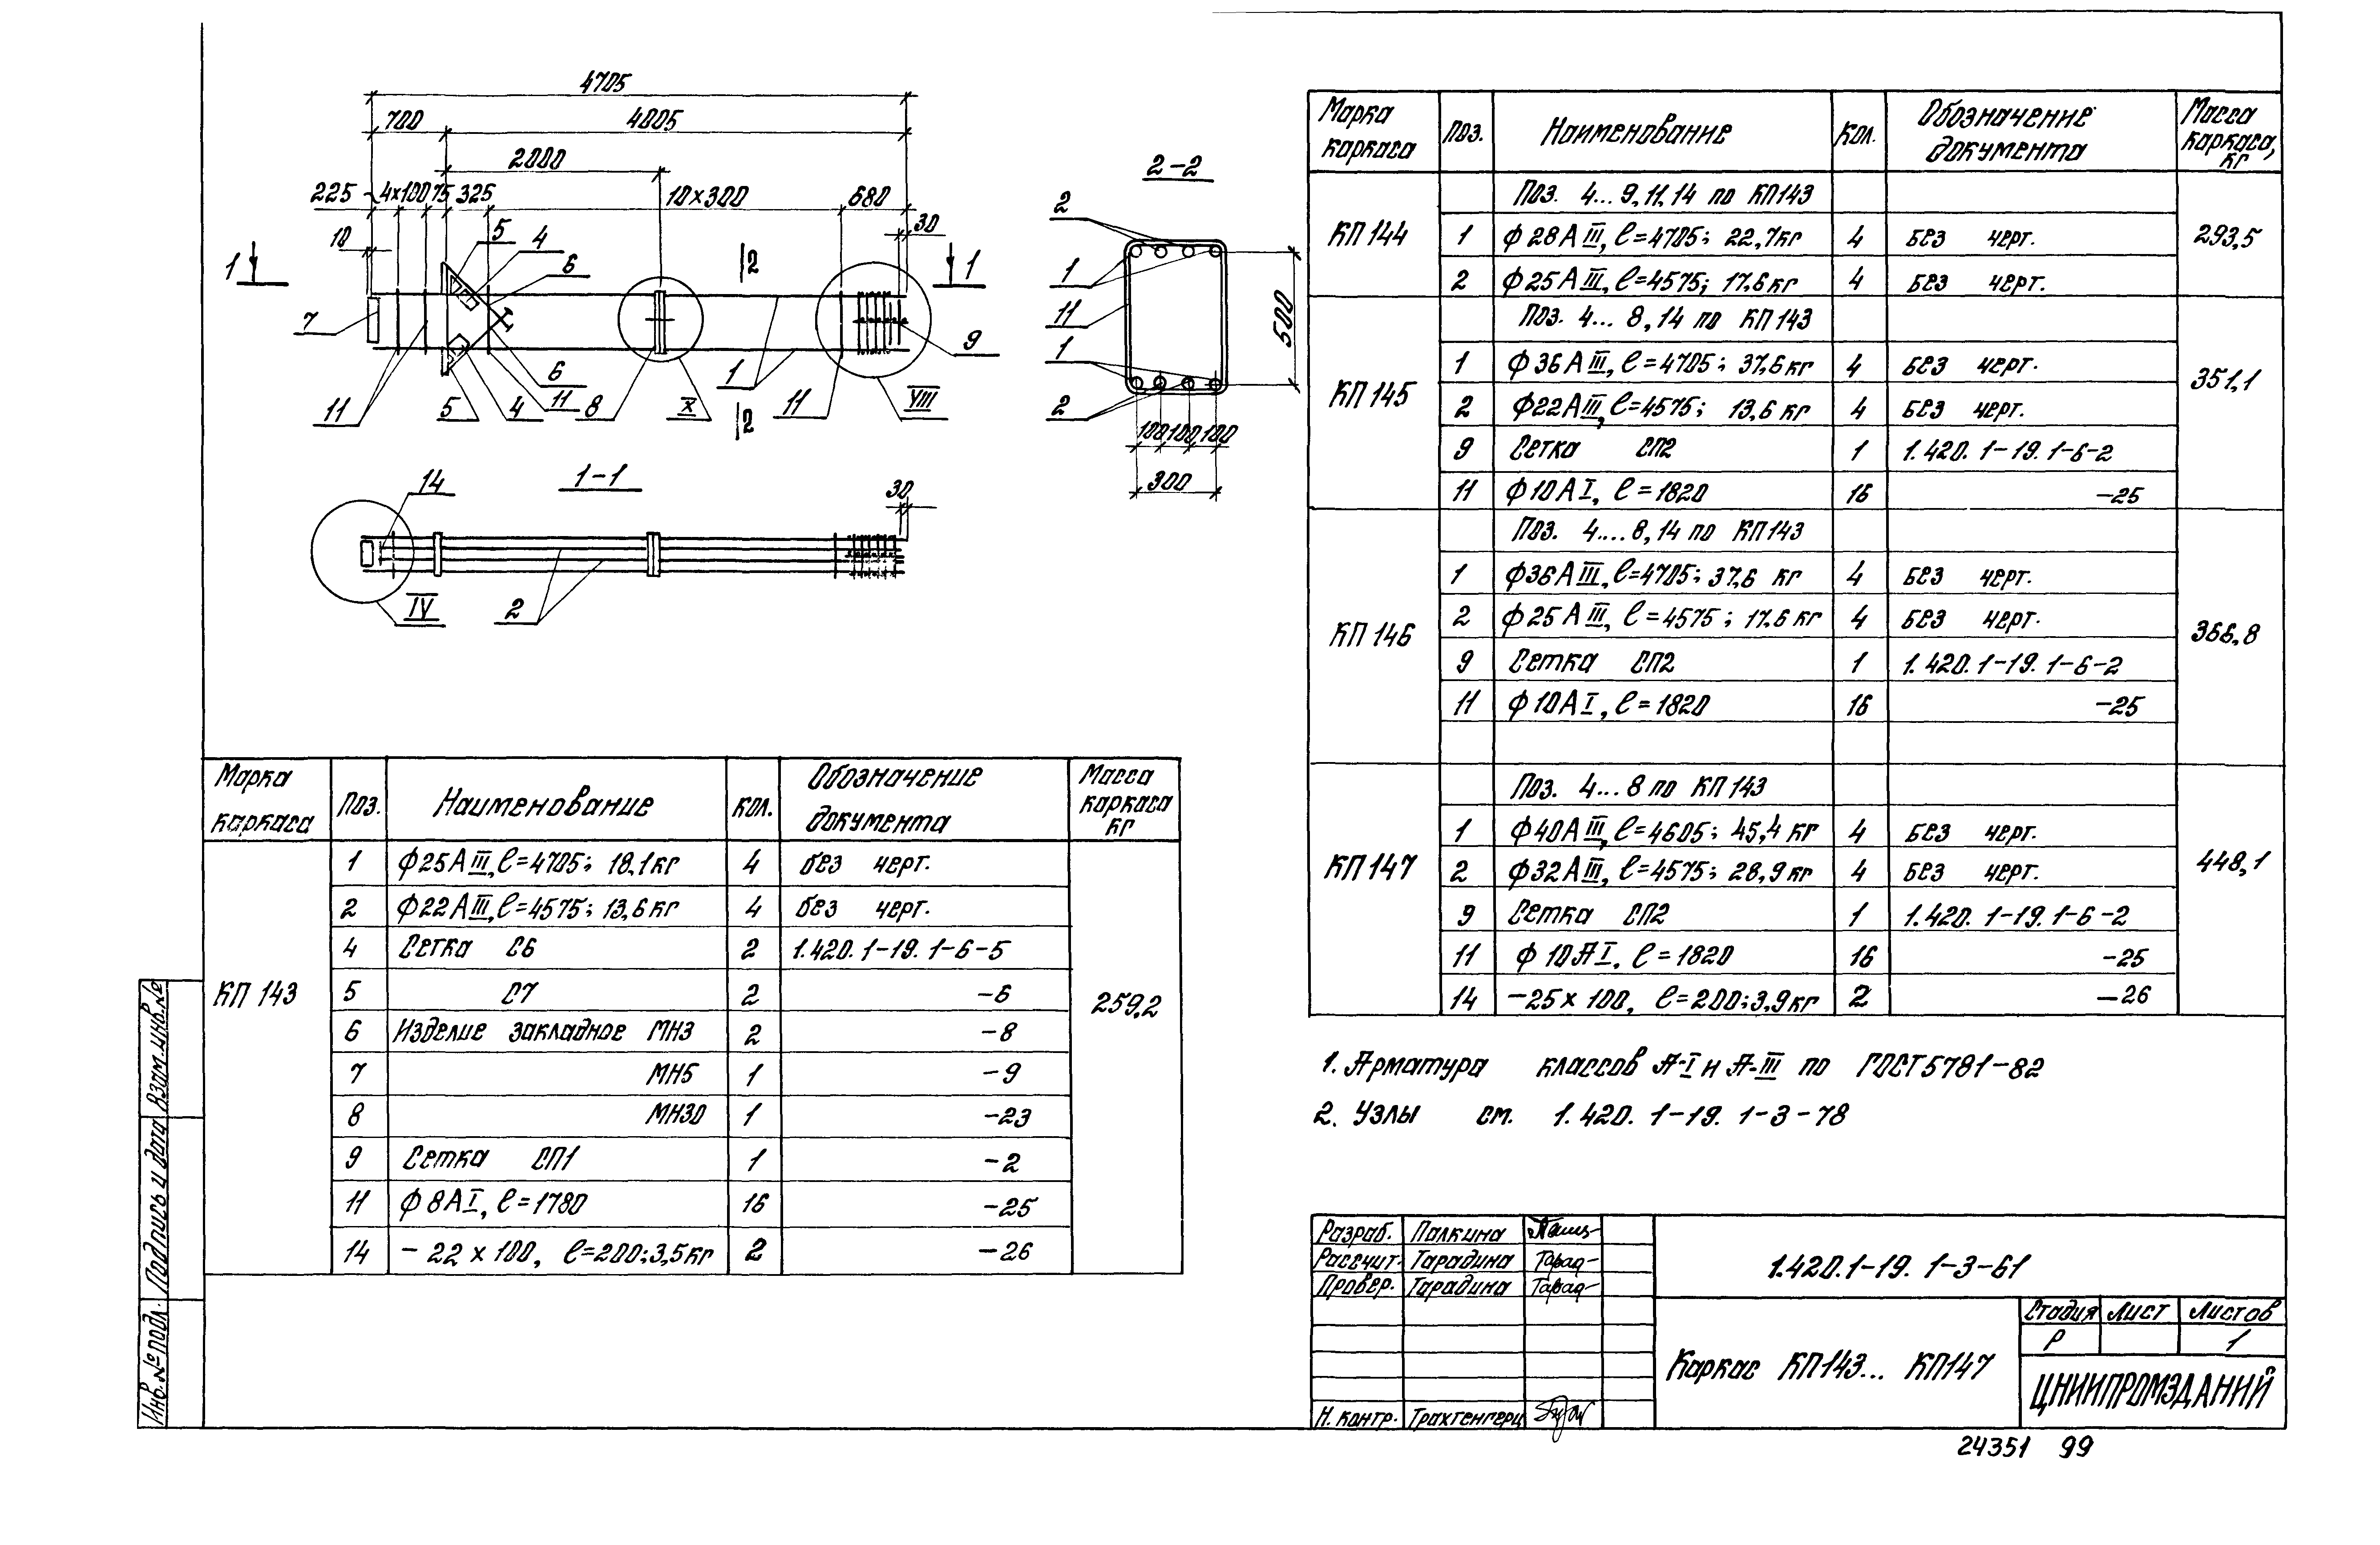 4705
700 4005
2000
225 4×100 75 325 10×300 680
30
10
5 4 6
1 1
2
7 9
11 5 4 6 11 8 X 1 11 VIII
2
1-1
14 30
IV 2
2-2
2
1
11
1
2
500
100 100 100
300
Марка каркаса Поз. Наименование Кол. Обозначение документа Масса каркаса кг
КП 143 259,2
1 ф25АIII, ℓ=4705; 18,1кг 4 без черт.
2 ф22АIII, ℓ=4575; 13,6кг 4 без черт.
4 Сетка С6 2 1.420.1-19.1-6-5
5 С7 2 -6
6 Изделие закладное МН3 2 -8
7 МН5 1 -9
8 МН30 1 -23
9 Сетка СП1 1 -2
11 ф8АI, ℓ=1780 16 -25
14 -22×100, ℓ=200; 3,5кг 2 -26
Марка каркаса Поз. Наименование Кол. Обозначение документа Масса каркаса, кг
КП 144 293,5
Поз. 4... 9, 11, 14 по КП143
1 ф28АIII, ℓ=4705; 22,7кг 4 без черт.
2 ф25АIII, ℓ=4575; 17.6кг 4 без черт.
КП 145 351,1
Поз. 4... 8, 14 по КП143
1 ф36АIII, ℓ=4705; 37,6кг 4 без черт.
2 ф22АIII, ℓ=4575; 13,6кг 4 без черт.
9 Сетка СП2 1 1.420.1-19.1-6-2
11 ф10АI, ℓ=1820 16 -25
КП 146 366,8
Поз. 4....8, 14 по КП143
1 ф36АIII, ℓ=4705; 37,6 кг 4 без черт.
2 ф25АIII, ℓ=4575; 17.6кг 4 без черт.
9 Сетка СП2 1 1.420.1-19.1-6-2
11 ф10АI, ℓ=1820 16 -25
КП 147 448,1
Поз. 4... 8 по КП143
1 ф40АIII, ℓ=4605; 45,4 кг 4 без черт.
2 ф32АIII, ℓ=4575; 28,9кг 4 без черт.
9 Сетка СП2 1 1.420.1-19.1-6-2
11 ф10АI, ℓ=1820 16 -25
14 -25×100, ℓ=200; 3,9кг 2 -26
1. Арматура классов А-I и А-III по ГОСТ 5781-82
2. Узлы см. 1.420.1-19.1-3-78
Разраб. Палкина
Рассчит. Тарадина Тарад-
Провер. Тарадина Тарад-
Н. контр. Трахтенгерц
1.420.1-19.1-3-61
Каркас КП143... КП147
Стадия Лист Листов
Р 1
ЦНИИПРОМЗДАНИЙ
24351 99
Инв.№ подл. Подпись и дата Взам.инв.№